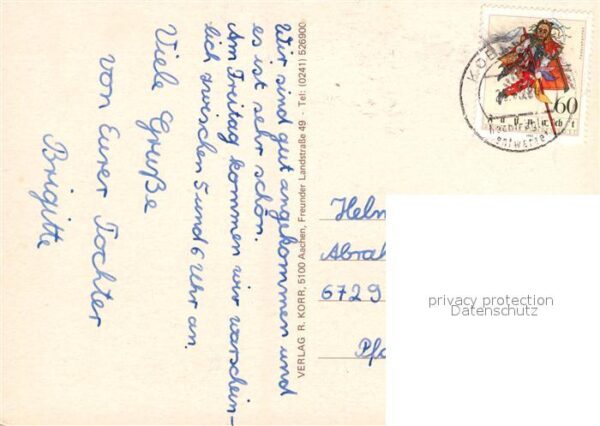 Wir sind gut angekommen und
es ist sehr schön.
Am Freitag kommen wir warschein-
lich zwischen 5 und 6 Uhr an.
Viele Grüße
von Eurer Tochter
Brigitte
VERLAG R. KORR, 5100 Aachen, Freunder Landstraße 49 · Tel: (0241) 526900
60
nachträglich
entwertet
Helm
Abrah
6729
Pfa
privacy protection
Datenschutz